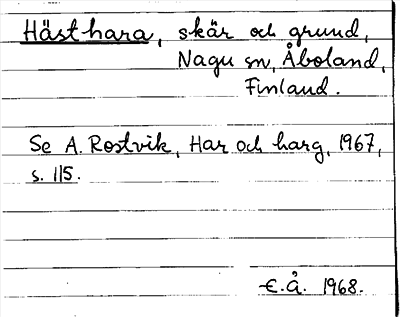 Hästhara, skär och grund,
Nagu sn, Åboland,
Finland.
Se A. Rostvik, Har och harg, 1967,
s. 115.
E.Å. 1968.